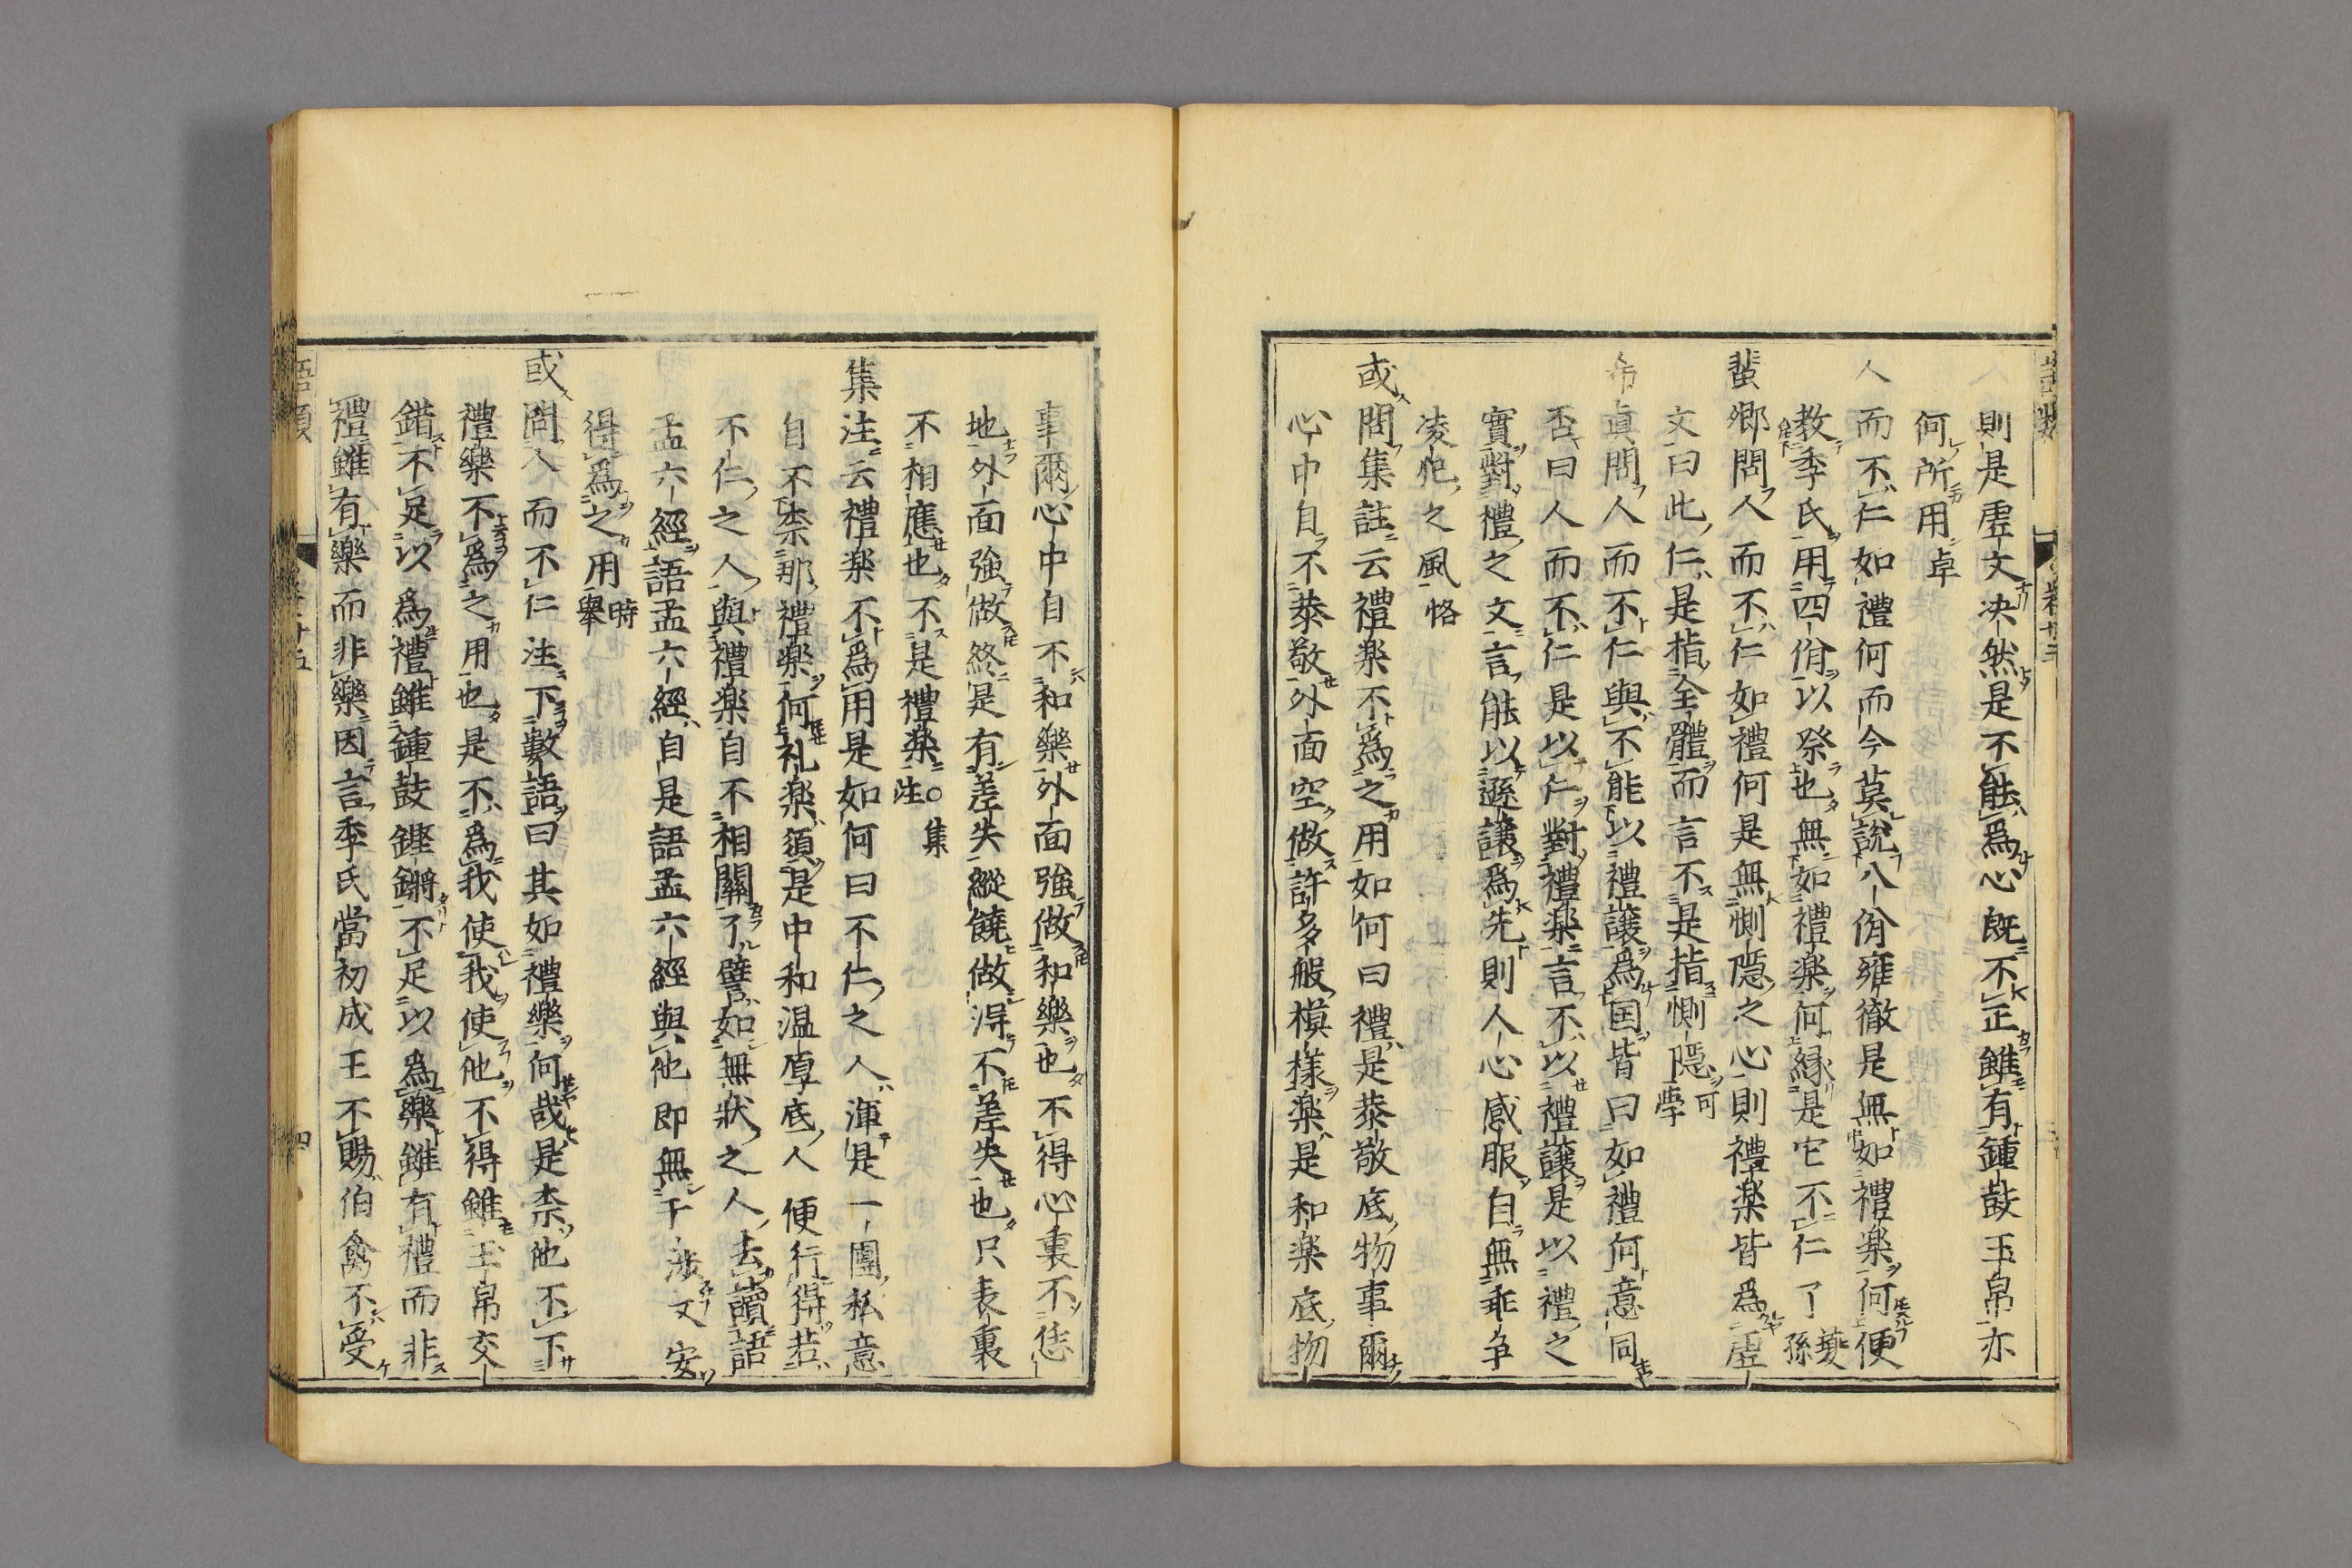 則是虛文決然是不能為心既不正雖有鍾鼓玉帛亦
何所用卓
人而不仁如禮何而今莫說八佾雍徹是無如禮楽何便
教季氏用四佾以祭也無如禮楽何縁是它不仁了蘷孫
蜚卿問人而不仁如禮何是無惻隠之心則禮楽皆為虛
文曰此仁是指全體而言不是指惻隠可學
希真問人而不仁與不能以禮譲為国皆曰如禮何意同
否曰人而不仁是以仁對禮楽言不以禮譲是以禮之
實對禮之文言能以遜譲為先則人心感服自無乖争
凌犯之風恪
或問集註云禮楽不為之用如何曰禮是恭敬底物事爾
心中自不恭敬外面空做許多般模様楽是和楽底物
事爾心中自不和樂外面強做和樂也不得心裏不恁
地外面強做終是有差失縱饒做得不差失也只表裏
不相應也不是禮楽○集注
集注云禮楽不為用是如何曰不仁之人渾是一團私意
自不柰那禮楽何礼楽須是中和温厚底人便行得若
不仁之人與禮楽自不相關了譬如無狀之人去讀語
孟六經語孟六經自是語孟六經與他即無干涉又安
得為之用時舉
或問人而不仁注下數語曰其如禮樂何哉是柰他不下
禮樂不為之用也是不為我使我使他不得雖玉帛交
錯不足以為禮雖鍾鼓鏗鏘不足以為樂雖有禮而非
禮雖有樂而非樂因言季氏當初成王不賜伯禽不受